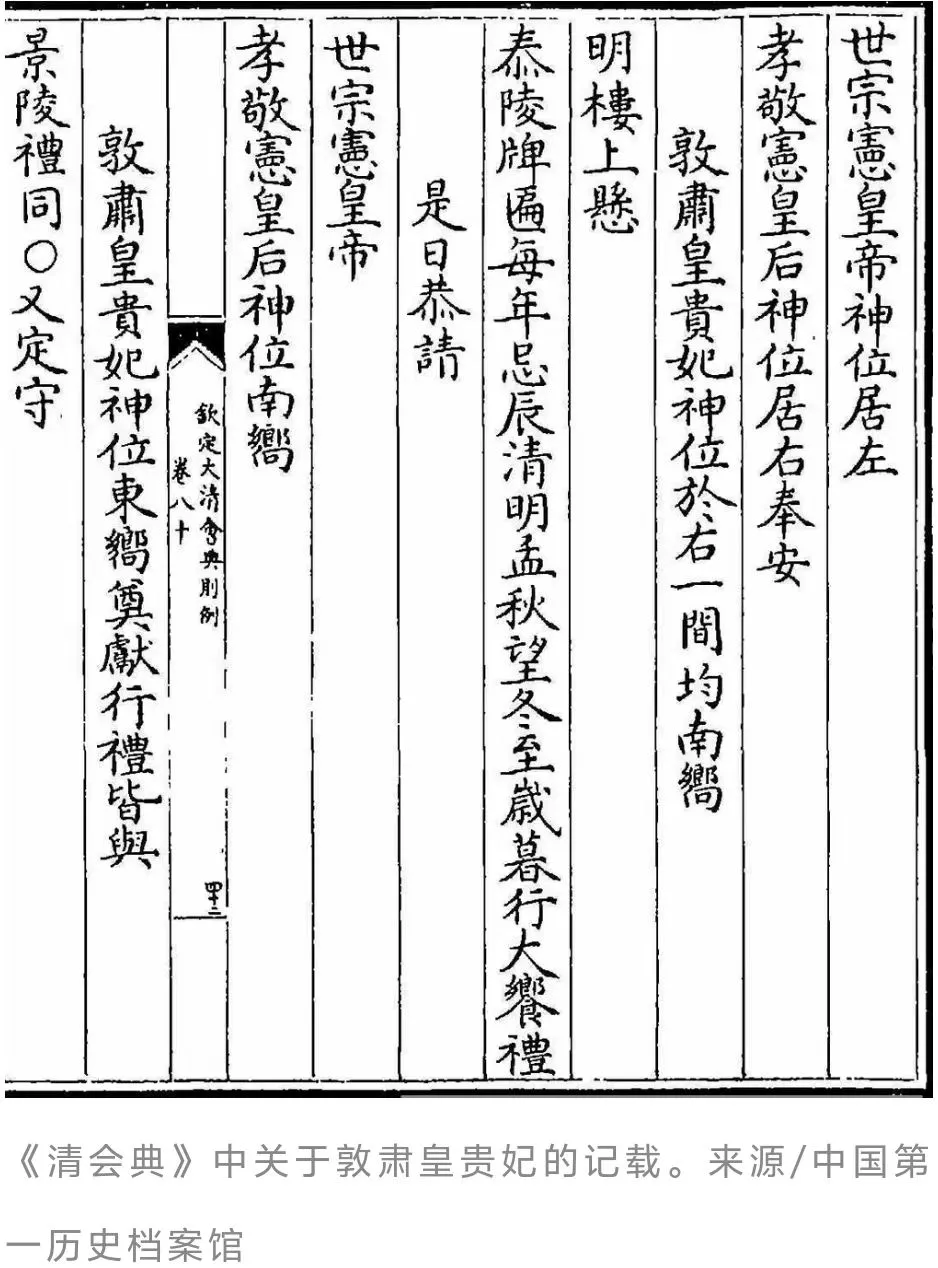 世宗憲皇帝神位居左
孝敬憲皇后神位居右奉安
敦肅皇貴妃神位於右一間均南嚮
明樓上懸
泰陵牌匾每年忌辰清明孟秋望冬至歲暮行大饗禮
是日恭請
世宗憲皇帝
孝敬憲皇后神位南嚮
欽定大清會典則例
卷八十
四十二
敦肅皇貴妃神位東嚮奠獻行禮皆與
景陵禮同〇又定守
《清会典》中关于敦肃皇贵妃的记载。来源/中国第
一历史档案馆